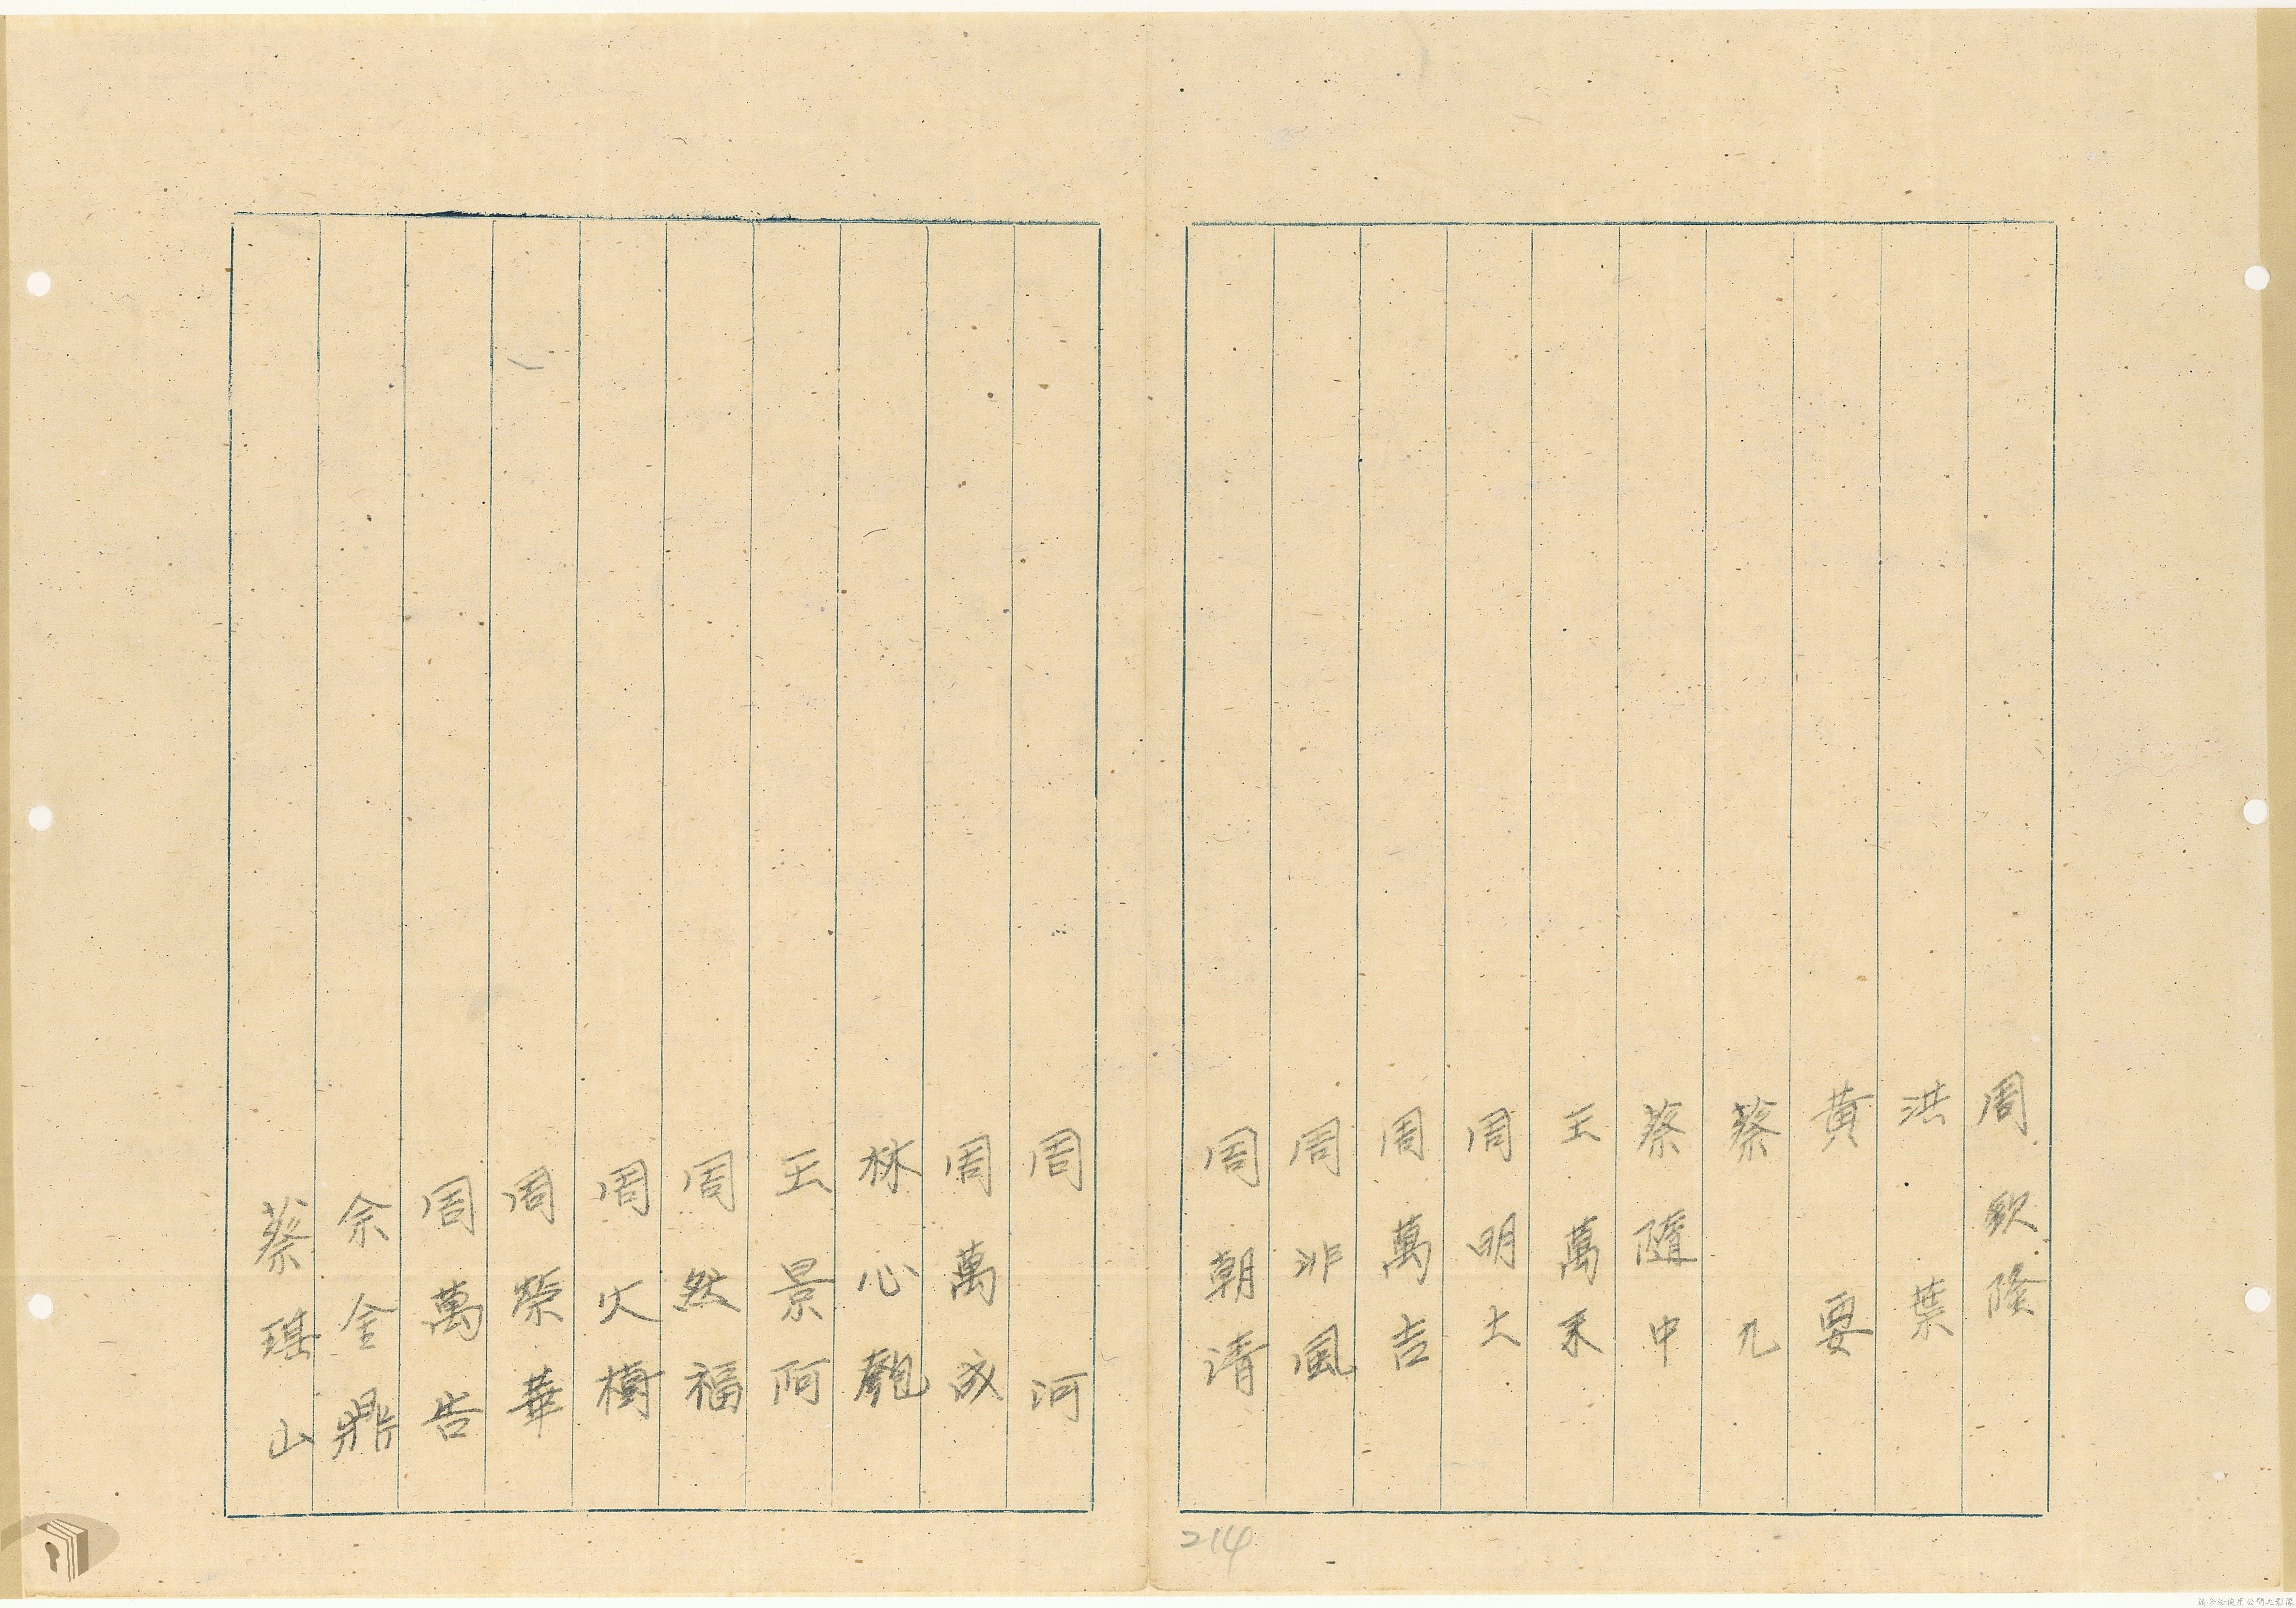 周欽隆
洪葉
黃要
蔡九
蔡隨中
王萬禾
周明土
周萬吉
周非風
周朝清
周河
周萬成
林心匏
王景阿
周然福
周火樹
周榮華
周萬告
余金鼎
蔡瑤山
214
請合法使用公開之影像